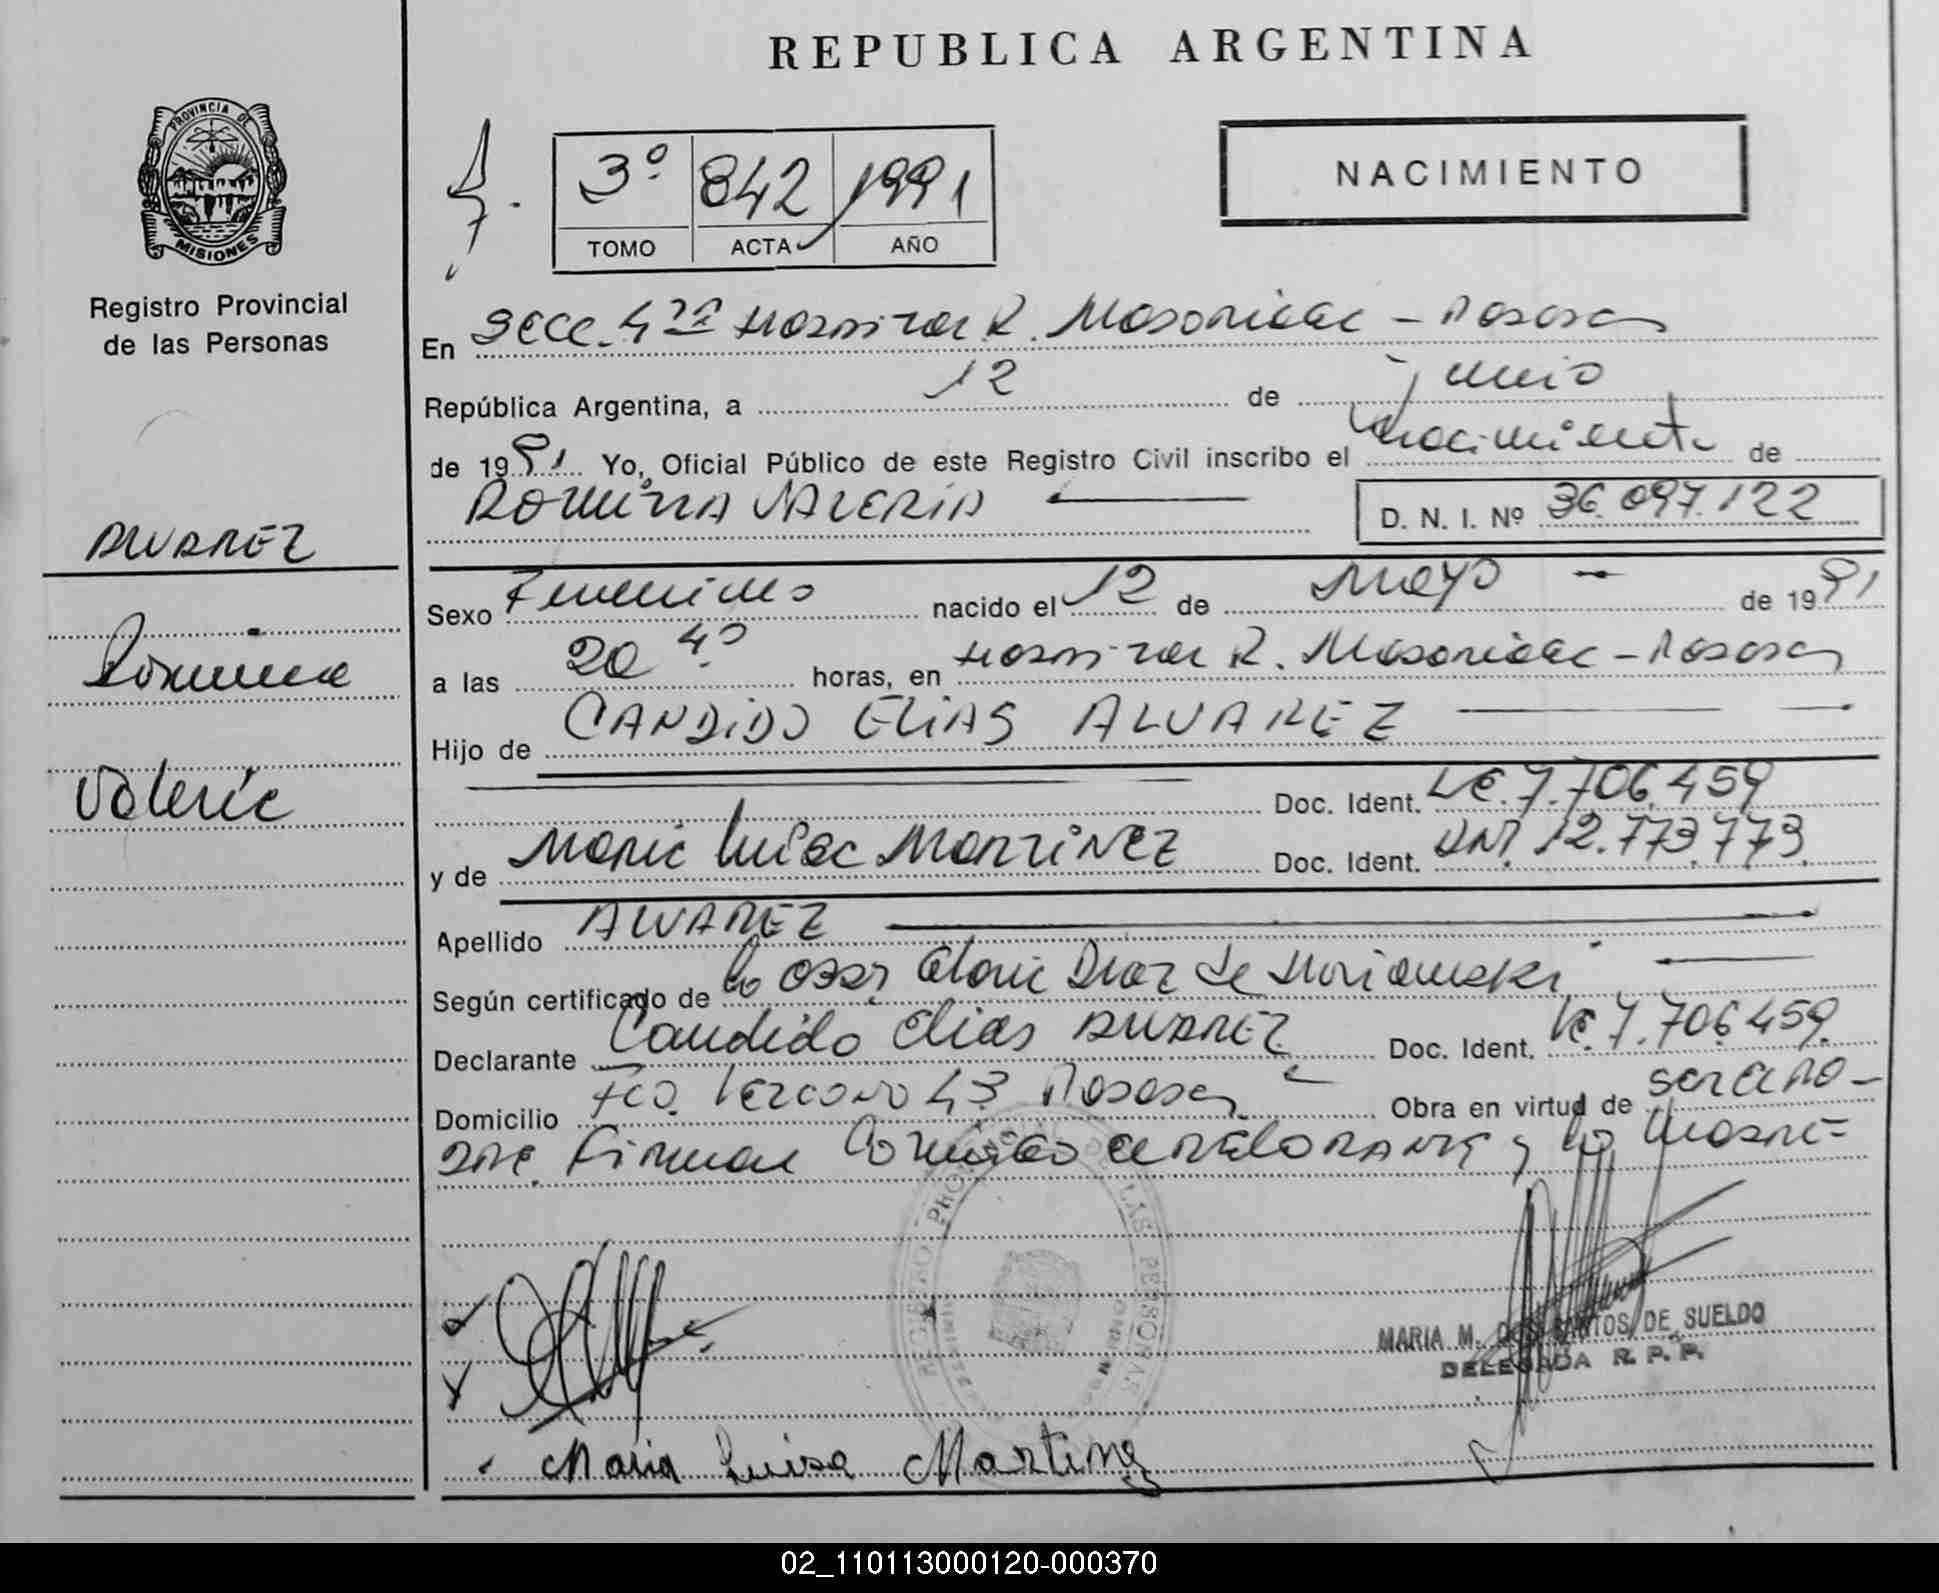 REPUBLICA ARGENTINA
PROVINCIA DE
MISIONES
Registro Provincial
de las Personas
3º 842 1991
TOMO ACTA AÑO
NACIMIENTO
En Secc. 4ta Hospital R. Madariaga - Posadas
República Argentina, a 12 de junio
de 1991 Yo, Oficial Público de este Registro Civil inscribo el nacimiento de
ROMINA VALERIA D. N. I. Nº 36.097.122
ALVAREZ
Romina
Valeria
Sexo Femenino nacido el 12 de Mayo de 1991
a las 20 40 horas, en Hospital R. Madariaga - Posadas
Hijo de CANDIDO ELIAS ALVAREZ
Doc. Ident. LE. 7.706.459
y de Maria Luisa MARTINEZ Doc. Ident. DNI. 12.773.773
Apellido ALVAREZ
Según certificado de la Obst. Diaz de
Declarante Candido Elias ALVAREZ Doc. Ident. LE. 7.706.459
Domicilio 43 Posadas Obra en virtud de ser el pa-
dre. Firman el DECLARANTE y la madre
REGISTRO PROVINCIAL DE LAS PERSONAS
MARIA M. DOS SANTOS DE SUELDO
DELEGADA R. P. P.
Maria Luisa Martinez
02_110113000120-000370